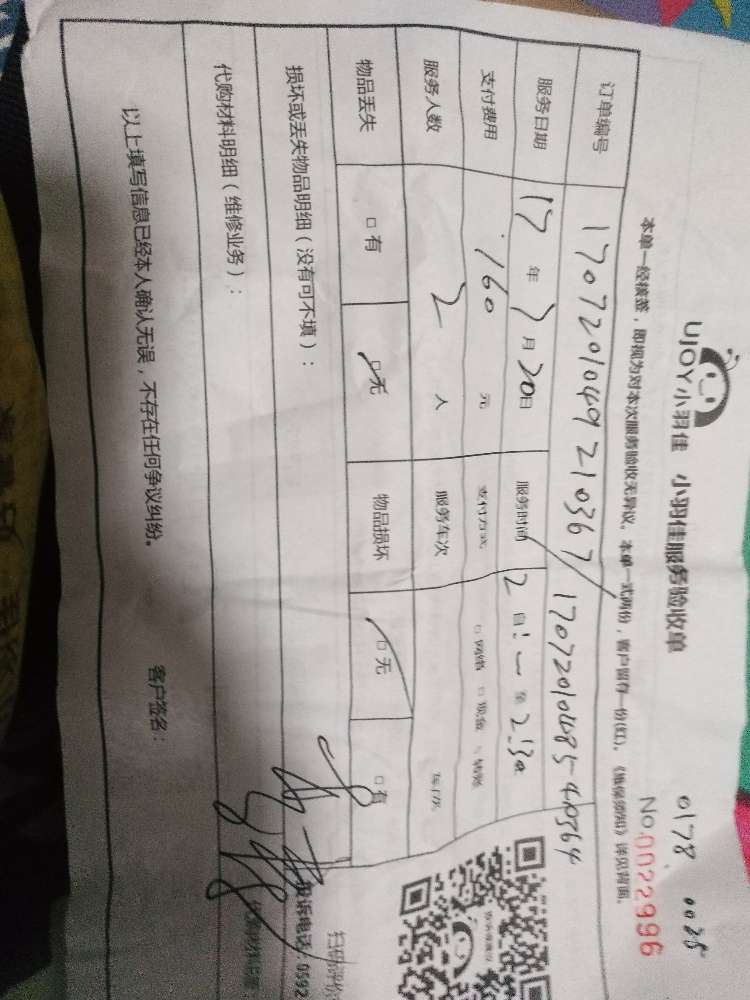 0178 0035
UJOY小羽佳 小羽佳服务验收单 No.0022996
本单一经核签，即视为对本次服务验收无异议。本单一式两份，客户留存一份(红)。《维保须知》详见背面。
订单编号 170720104921036 7/1707201048540564
服务日期 17年7月20日 服务时间 2自:一至2:30
支付费用 160元 支付方式 □网络 □现金 □转账
服务人数 2人 服务车次 车次
物品丢失 □有 □无 物品损坏 □无 □有
损坏或丢失物品明细（没有可不填）：
代购材料明细（维修业务）：
以上填写信息已经本人确认无误，不存在任何争议纠纷。
客户签名：
扫码评价
投诉电话：0592